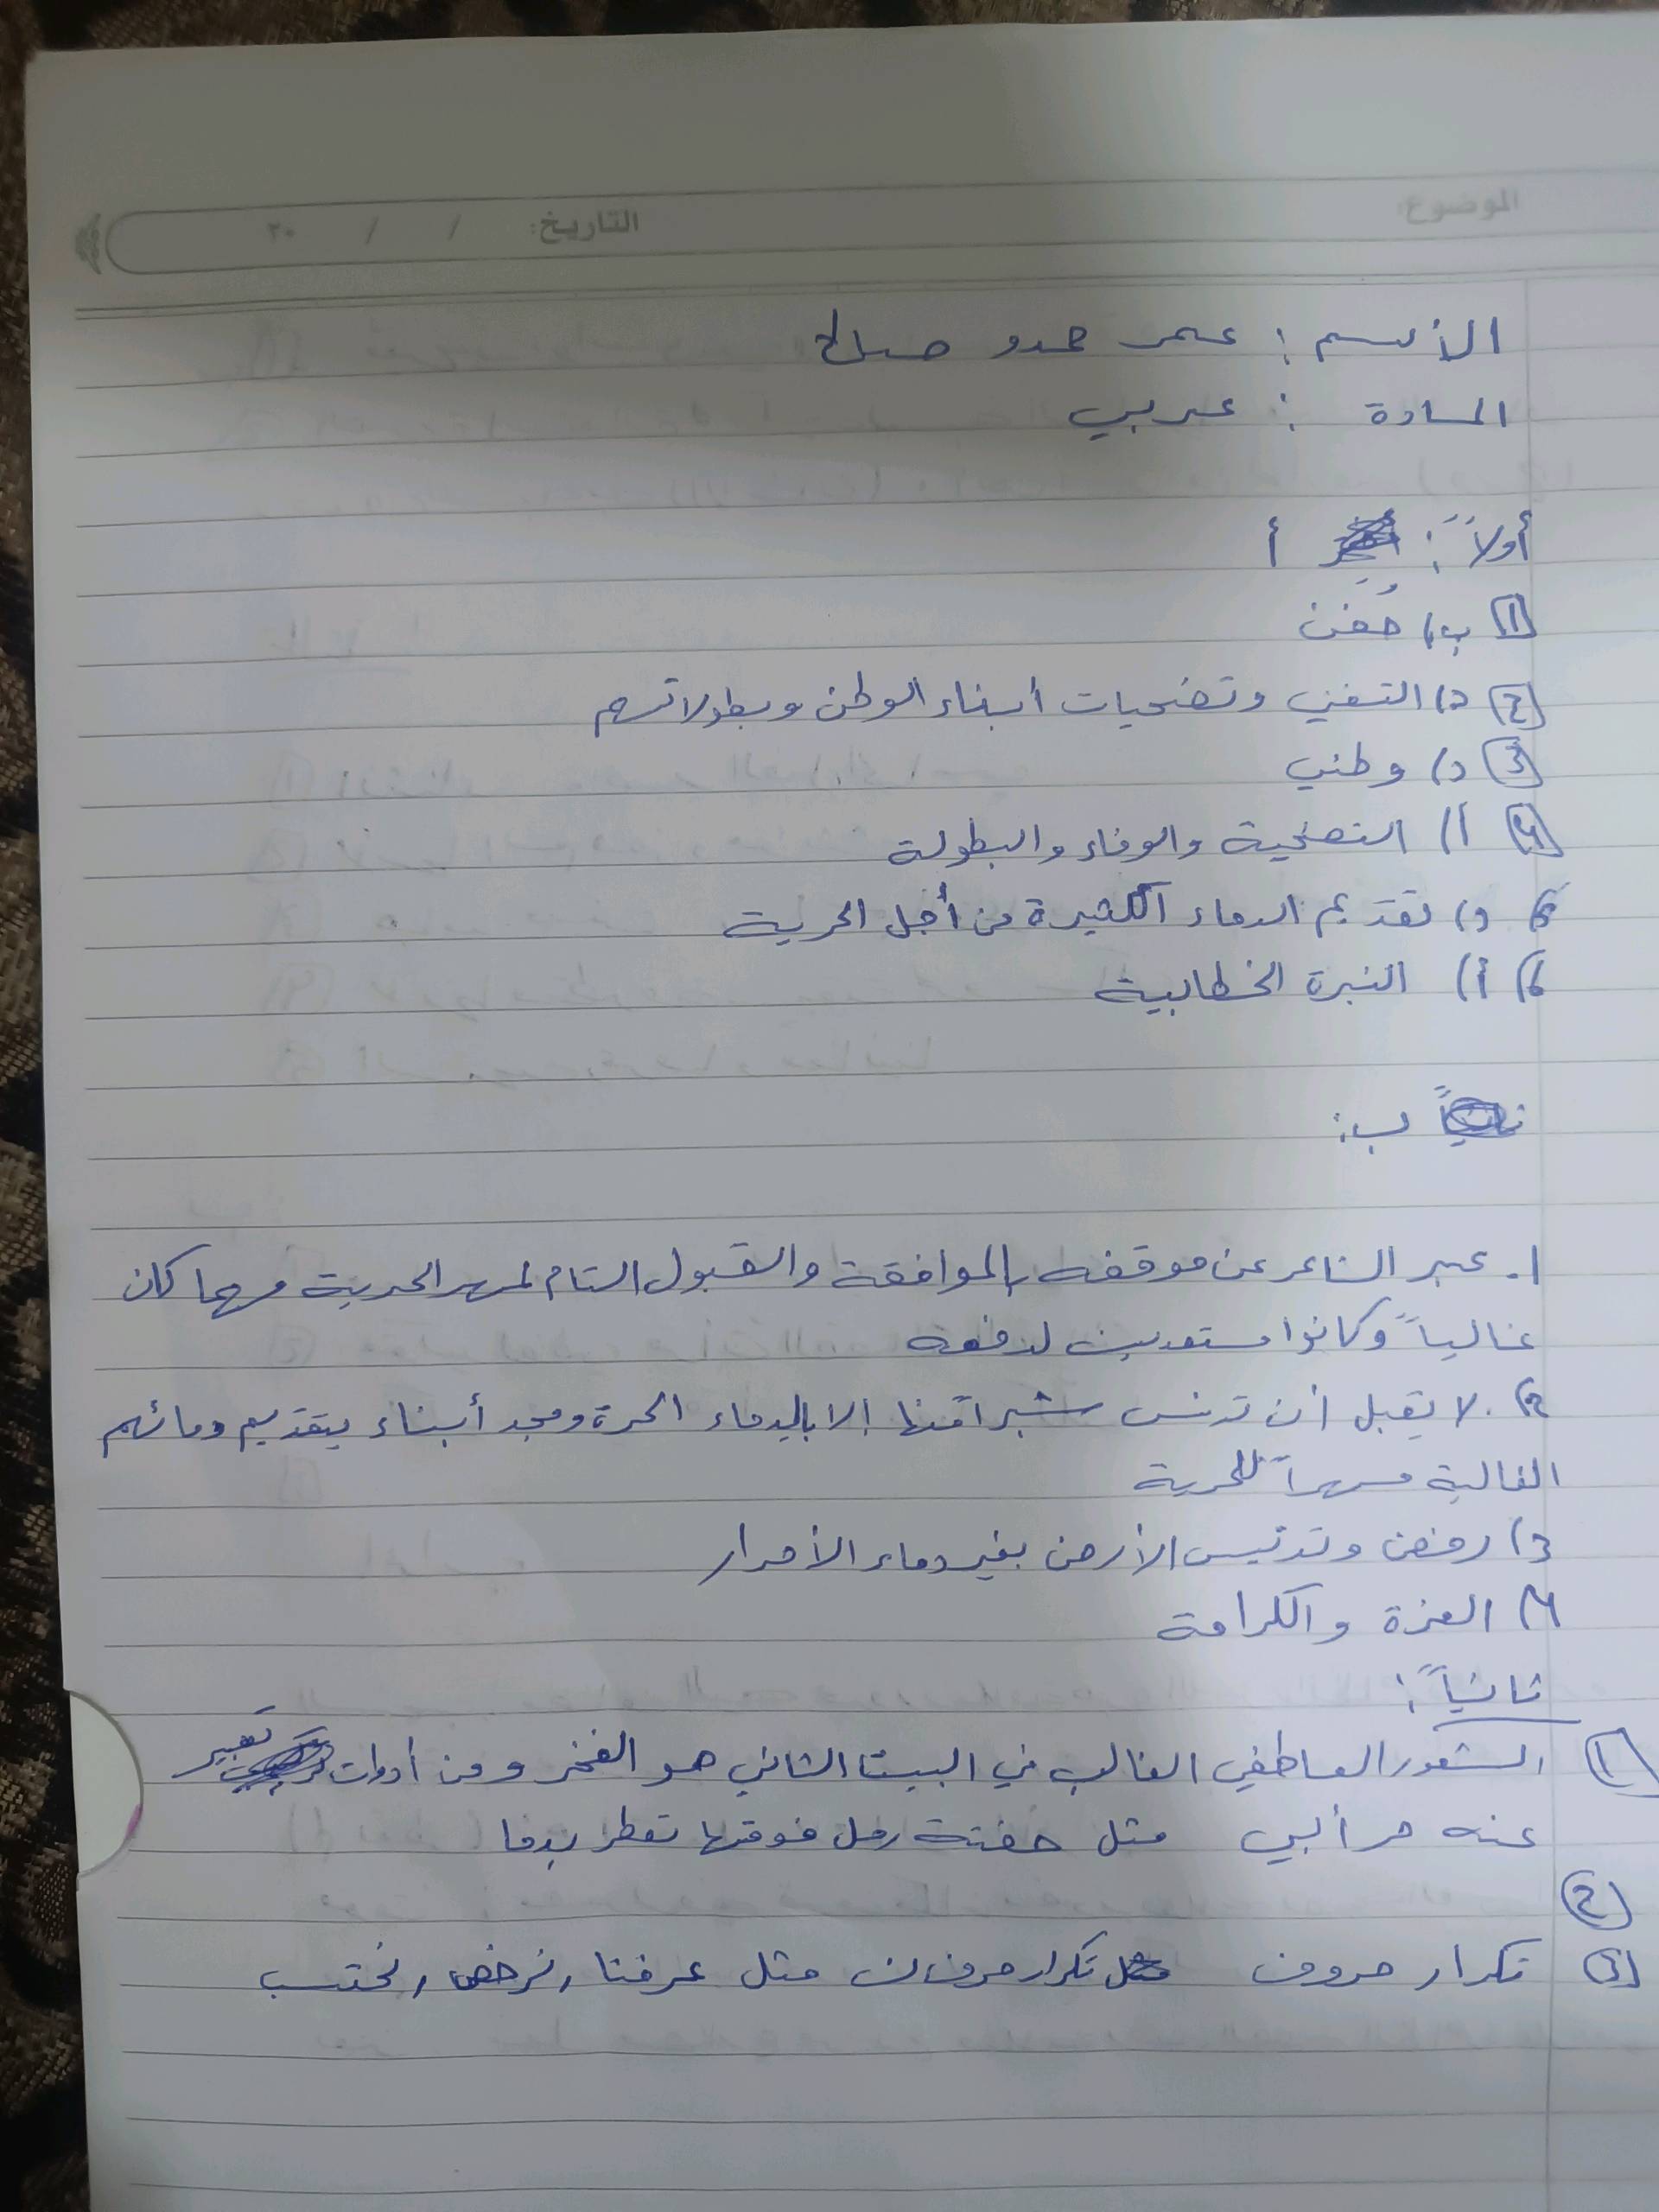 الموضوع:
التاريخ: / / ٢٠
الأسم : عمر حمدو صالح
المادة : عربي
أولاً : أ
1 ب) حفن
2 د) التغني وتضحيات أبناء الوطن وبطولاتهم
3 د) وطني
4 أ) التضحية والوفاء والبطولة
5 د) تقديم الدماء الكثيرة من أجل الحرية
6) أ) النبرة الخطابية
ب:
1. عبر الشاعر عن موقفه بالموافقة والقبول التام لمهر الحرية مهما كان
غالياً وكانوا مستعدين لدفعه
2. لا يقبل أن تدنس شبراً منها إلا بالدماء الحرة ومجد أبناء بتقديم دمائهم
الغالية مهراً للحرية
3) رفض وتدنيس الأرض بغير دماء الأحرار
4) العزة والكرامة
ثانياً :
1) الشعور العاطفي الغالب في البيت الثاني هو الفخر ومن أدوات تعبير
عنه مثل حفنة رمل فوقها تعطر بدما
2)
3) تكرار حروف تكرار حرف ن مثل عرفنا ، نرخص ، نحتسب